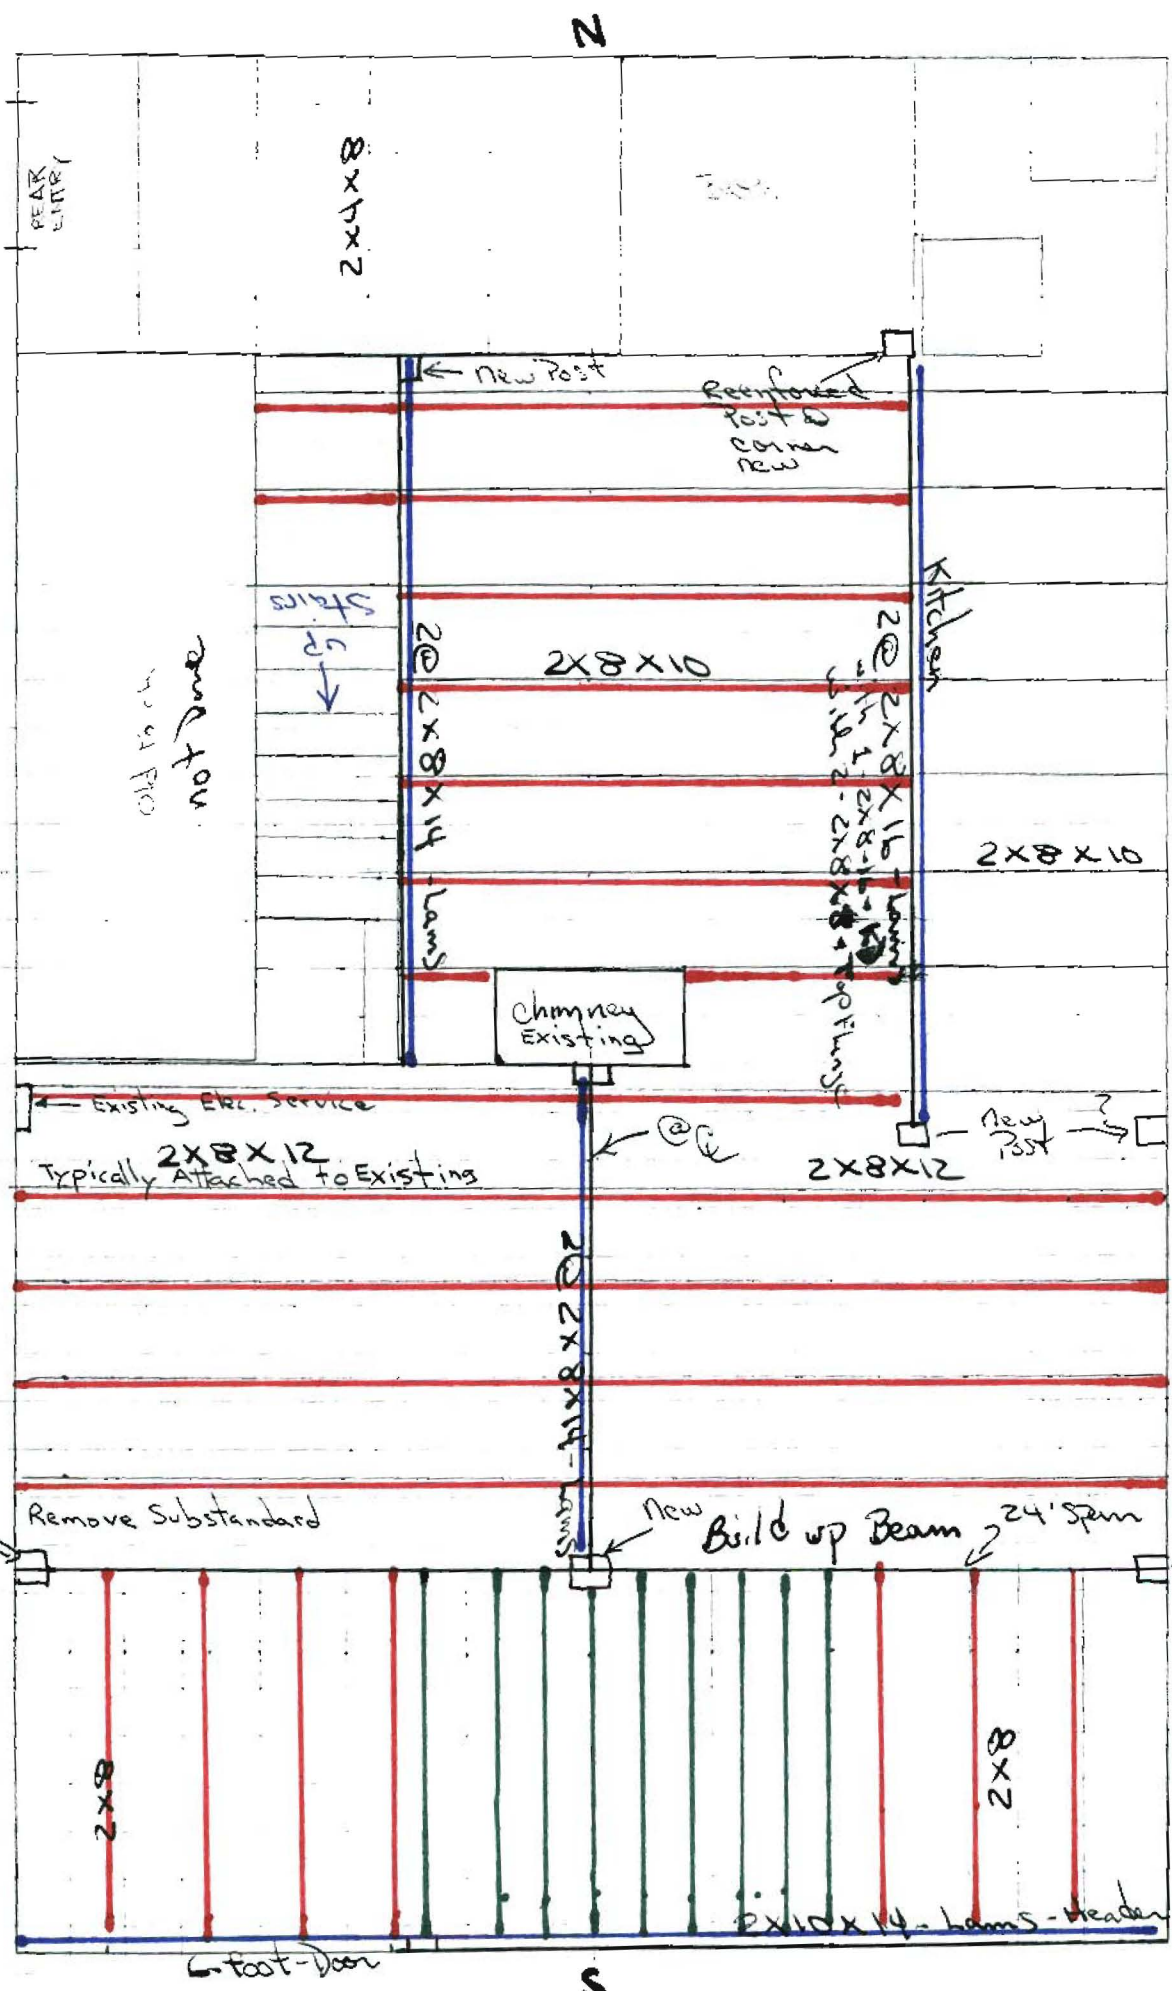 N
REAR
ENTRY
2x4x8
New Post
Reenforced
Post @
corner
new
Kitchen
Stairs
up
2@ 2x8x14 - Lams
2x8x10
2@ 2x8x16 - Lams
not Done
2x8x10
Chimney
Existing
Existing Elec. Service
@ CL
new
Post
?
2x8x12
Typically Attached to Existing
2x8x12
2@ 2x8x14 - Lams
Remove Substandard
New
Build up Beam
24' Span
2x8
2x8
2x10x14 - Lams - Header
6-foot-Door
S